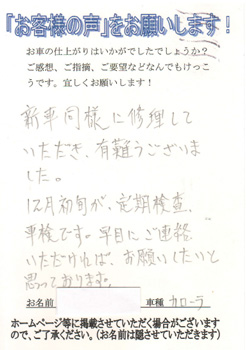 「お客様の声」をお願いします！
お車の仕上がりはいかがでしたでしょうか？
ご感想、ご指摘、ご要望などなんでもけっこ
うです。宜しくお願いします！
新車同様に修理して
いただき、有難うございま
した。
12月初旬が、定期検査、
車検です。早目にご連絡
いただければ、お願いしたいと
思っております。
お名前 車種 カローラ
ホームページ等に掲載させていただく場合がございます
ので、ご了承ください。（お名前は隠させていただきます）